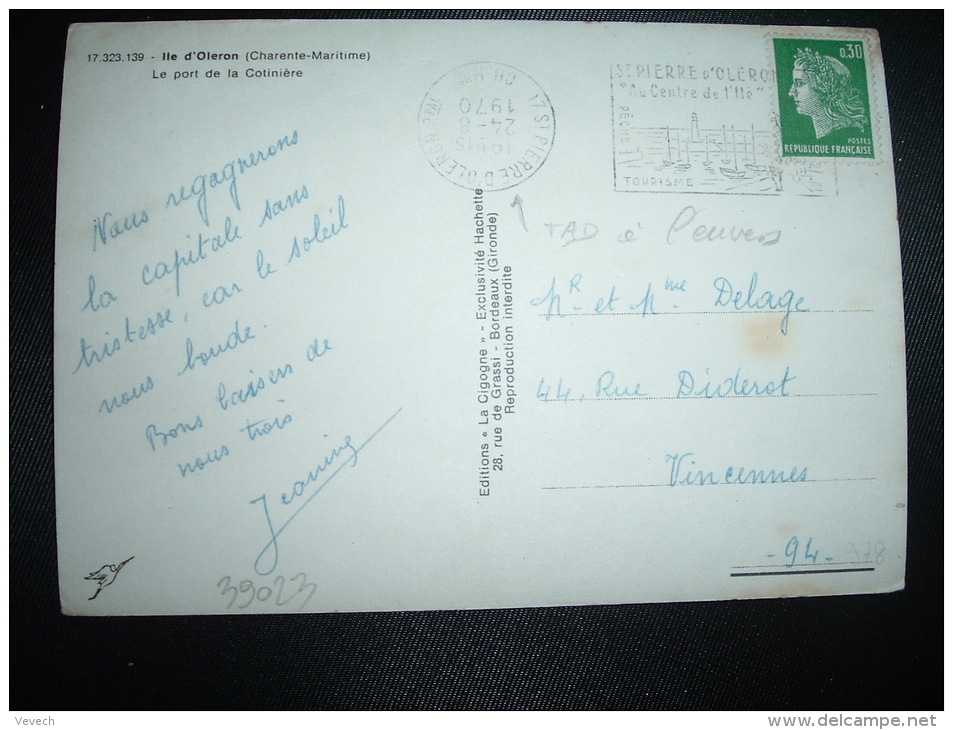 17.323.139 - Ile d'Oleron (Charente-Maritime)
Le port de la Cotinière
Nous regagnerons
la capitale sans
tristesse, car le soleil
nous boude.
Bons baisers de
nous trois
Jeanine
39023
17 ST PIERRE D'OLERON PPAL CH. MME
19H15
24-8
1970
ST PIERRE D'OLERON
"Au Centre de l'Ile"
PÊCHE
TOURISME
0,30
POSTES
REPUBLIQUE FRANÇAISE
TAD à l'envers
Editions « La Cigogne » - Exclusivité Hachette
28, rue de Grassi - Bordeaux (Gironde)
Reproduction interdite
Mr et Mme Delage
44, Rue Diderot
Vincennes
- 94 -
978
Vevech
www.delcampe.net